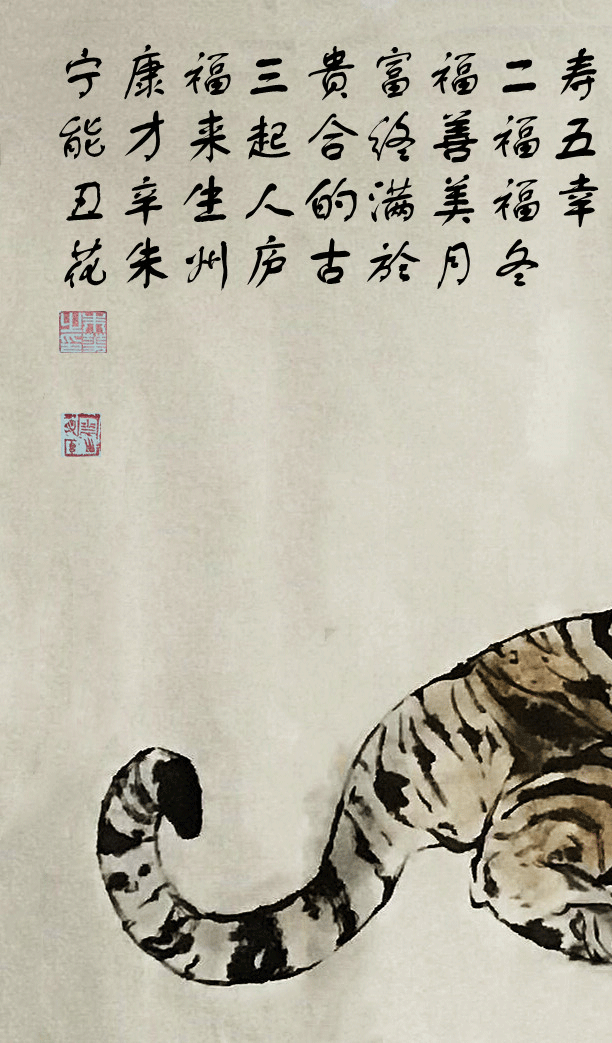 寿五幸
二福福冬
福善美月
富终满於
贵合的古
三起人庐
福来生州
康才辛朱
宁能丑花